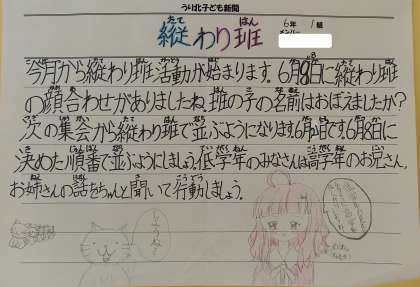 うり北子ども新聞
6年 1組
メンバー
縦わり班
今月から縦わり班活動が始まります。6月8日に縦わり班
の顔合わせがありましたね。班の子の名前はおぼえましたか?
次の集会から縦わり班で並ぶようになります。
6月8日に
決めた順番で並ぶようにしましょう。低学年のみなさんは高学年のお兄さん、
お姉さんの話をちゃんと聞いて行動しましょう。